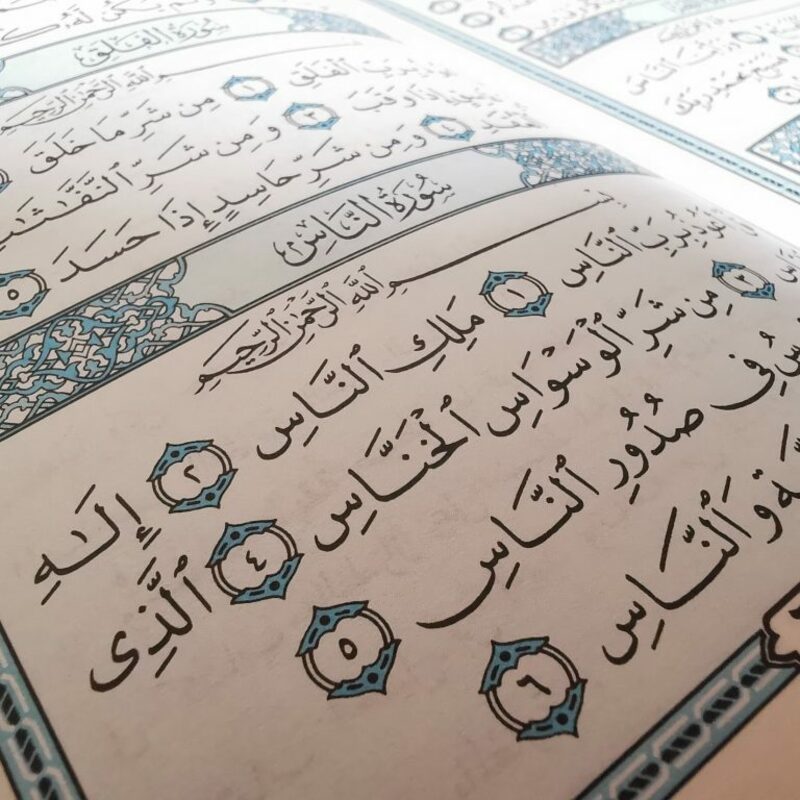 وَلَمْ يَكُن لَّهُ
سُورَةُ الفَلَقِ
ٱللَّهِ ٱلرَّحْمَٰنِ ٱلرَّحِيمِ
بِرَبِّ ٱلْفَلَقِ ١ مِن شَرِّ مَا خَلَقَ
إِذَا وَقَبَ ٣ وَمِن شَرِّ ٱلنَّفَّٰثَٰتِ
٤ وَمِن شَرِّ حَاسِدٍ إِذَا حَسَدَ ٥
سُورَةُ النَّاسِ
بِسْمِ ٱللَّهِ ٱلرَّحْمَٰنِ ٱلرَّحِيمِ
بِرَبِّ ٱلنَّاسِ ١ مَلِكِ ٱلنَّاسِ ٢ إِلَٰهِ
٣ مِن شَرِّ ٱلْوَسْوَاسِ ٱلْخَنَّاسِ ٤ ٱلَّذِى
فِى صُدُورِ ٱلنَّاسِ ٥
وَٱلنَّاسِ ٦